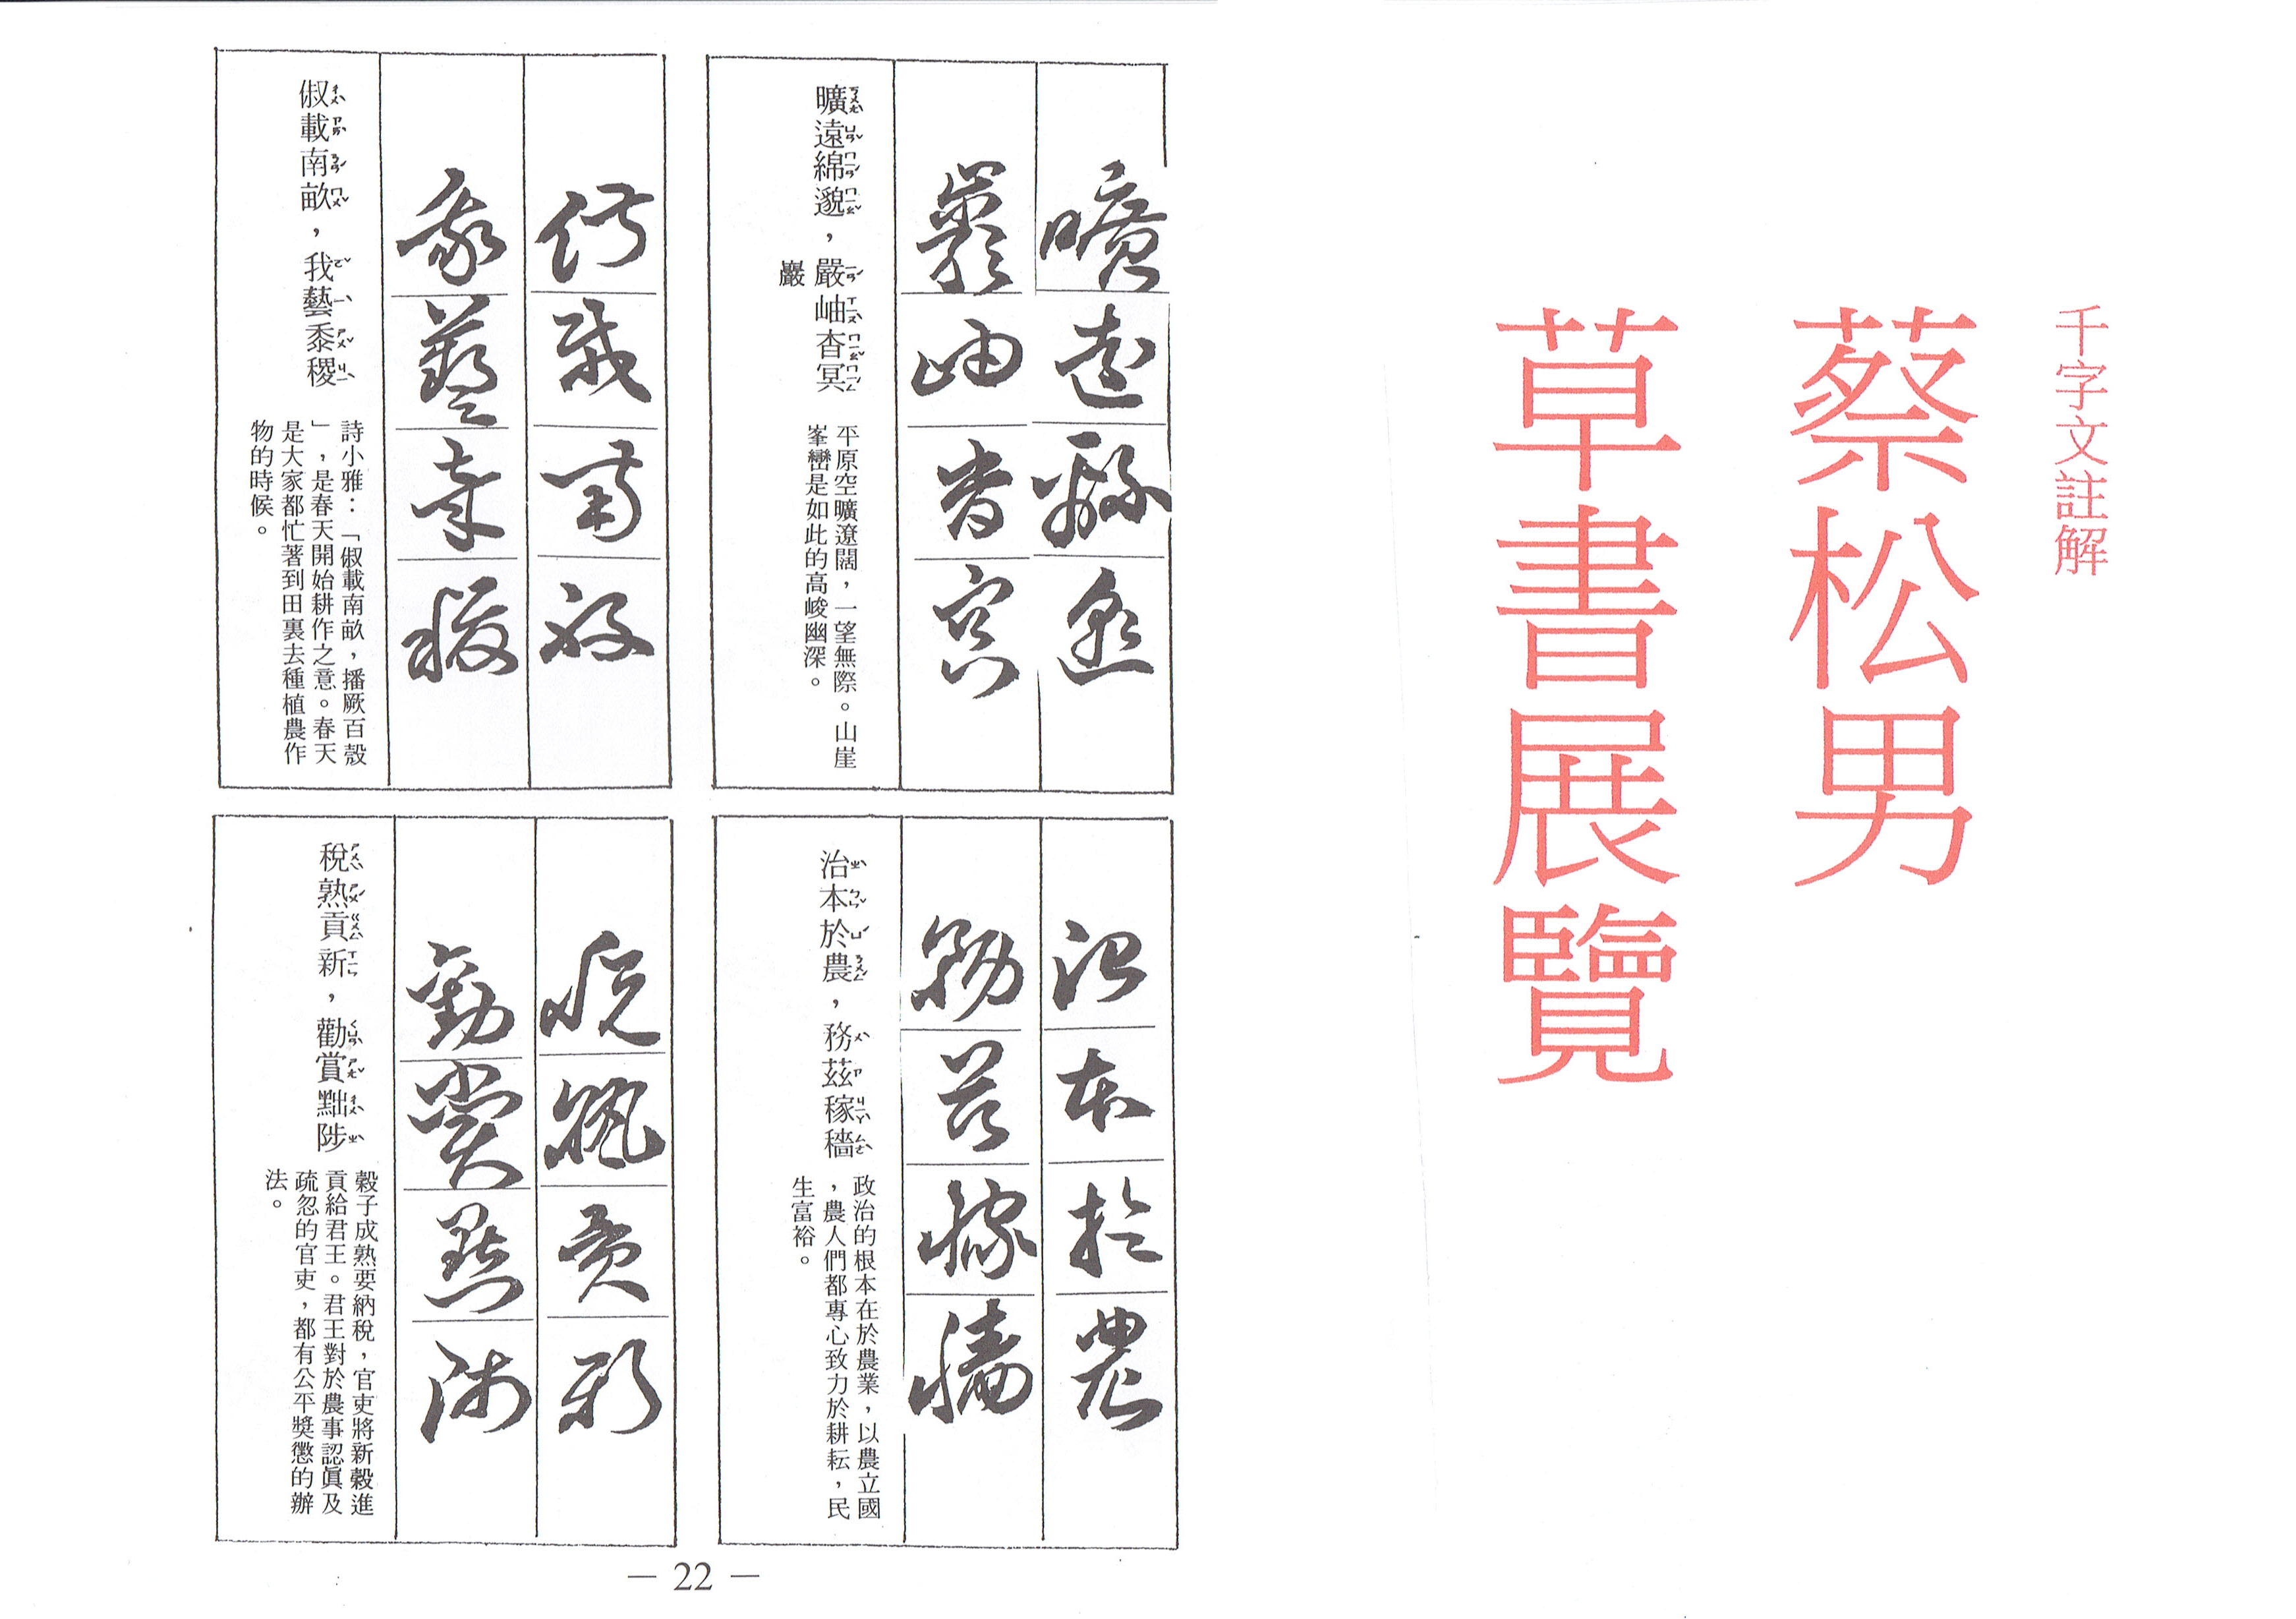 千字文註解
蔡松男
草書展覽
曠遠綿邈
巖岫杳冥
曠遠綿邈，嚴岫杳冥
巖
平原空曠遼闊，一望無際。山崖
峯巒是如此的高峻幽深。
治本於農
務茲稼穡
治本於農，務茲稼穡
政治的根本在於農業，以農立國
，農人們都專心致力於耕耘，民
生富裕。
俶載南畝
我藝黍稷
俶載南畝，我藝黍稷
詩小雅：「俶載南畝，播厥百穀
」，是春天開始耕作之意。春天
是大家都忙著到田裏去種植農作
物的時候。
稅熟貢新
勸賞黜陟
稅熟貢新，勸賞黜陟
穀子成熟要納稅，官吏將新穀進
貢給君王。君王對於農事認眞及
疏忽的官吏，都有公平獎懲的辦
法。
— 22 —